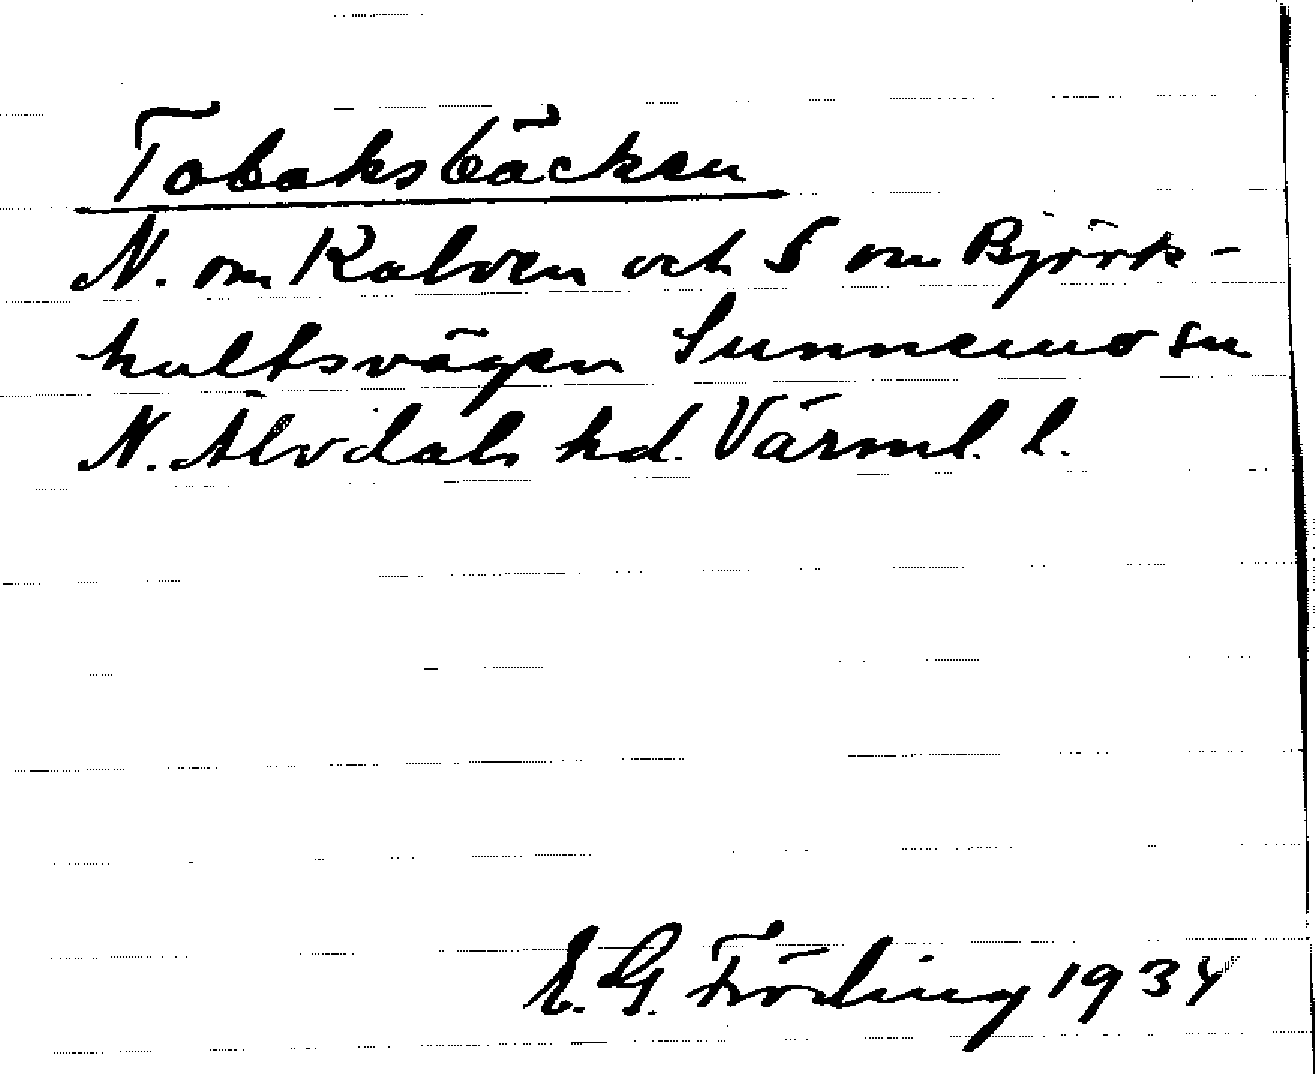 Tobaksbäcken
N. om Kalven och S om Björk-
hultsvägen Sunnemo sn
N. Älvdals hd. Värml. l.
E. G. Fröding 1934